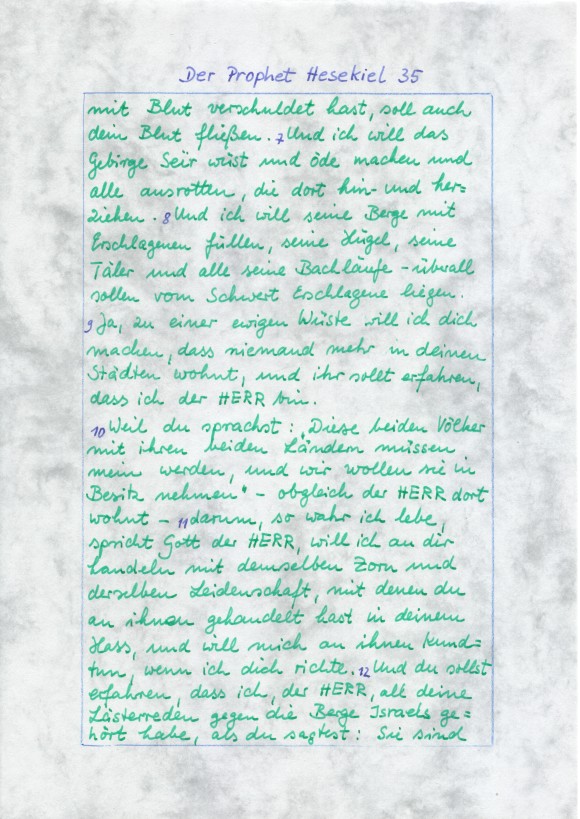 Der Prophet Hesekiel 35
mit Blut verschuldet hast, soll auch
dein Blut fließen. 7 Und ich will das
Gebirge Seïr wüst und öde machen und
alle ausrotten, die dort hin- und her=
ziehen. 8 Und ich will seine Berge mit
Erschlagenen füllen, seine Hügel, seine
Täler und alle seine Bachläufe - überall
sollen vom Schwert Erschlagene liegen.
9 Ja, zu einer ewigen Wüste will ich dich
machen, dass niemand mehr in deinen
Städten wohnt, und ihr sollt erfahren,
dass ich der HERR bin.
10 Weil du sprachst: „Diese beiden Völker
mit ihren beiden Ländern müssen
mein werden, und wir wollen sie in
Besitz nehmen“ - obgleich der HERR dort
wohnt - 11 darum, so wahr ich lebe,
spricht Gott der HERR, will ich an dir
handeln mit demselben Zorn und
derselben Leidenschaft, mit denen du
an ihnen gehandelt hast in deinem
Hass, und will mich an ihnen kund=
tun, wenn ich dich richte. 12 Und du sollst
erfahren, dass ich, der HERR, all deine
Lästerreden gegen die Berge Israels ge=
hört habe, als du sagtest: Sie sind